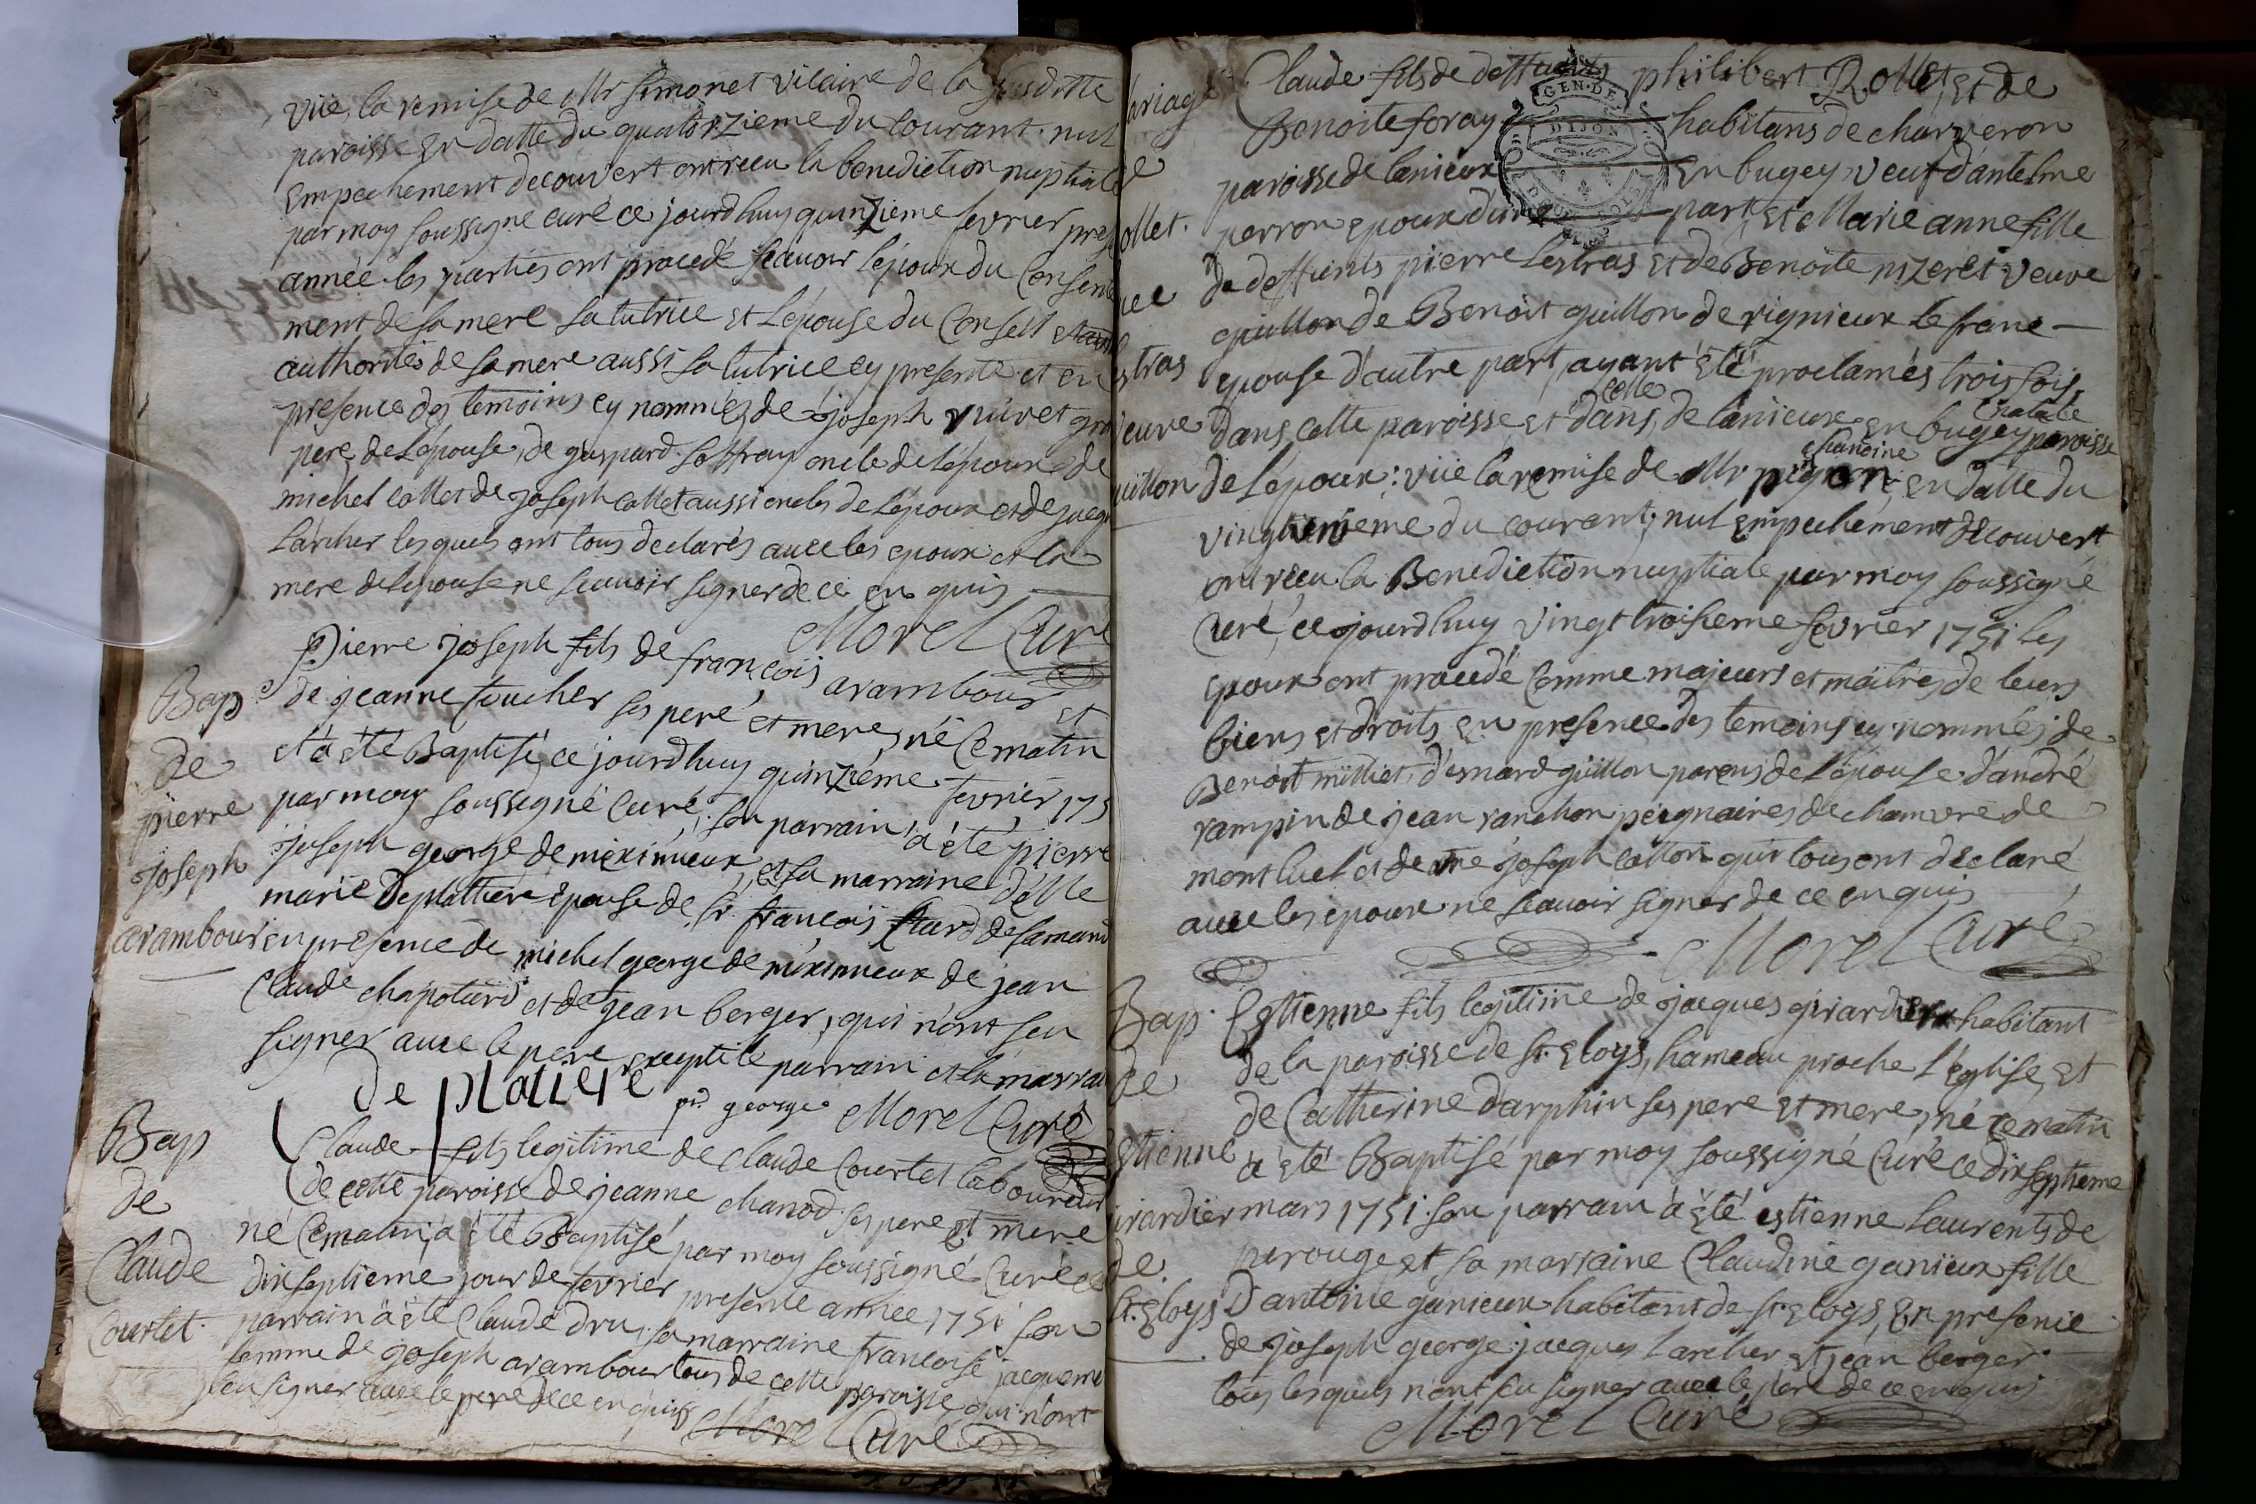 vüe la remise de Mr simonet vicaire de la susditte
paroisse en datte du quatorzieme du courant. nul
empechement decouvert ont recu la benediction nuptiale
par moy soussigné curé ce jourdhuy quinzieme fevrier
année les parties ont procedé scavoir l'époux du consente
ment de sa mere sa tutrice et l'épouse du conseil et
authorités de sa mere aussi sa tutrice cy presente et en
presence des temoins cy nommés de joseph
pere de l'épouse, de gaspard soffray oncle de l'époux de
michel collet de joseph collet aussi oncles de l'époux et de
Larcher lesquels ont tous declarés avec les epoux et la
mere de lepouse ne scavoir signer de ce en quis
Morel Curé
Bap
de
pierre
joseph
arambour
Pierre joseph fils de francois arambour et
de jeanne foucher ses peré et mere, né ce matin
et à été Baptisé ce jourdhuy quinziéme fevrier 175
par moy soussigné Curé. son parrain à été pierre
joseph george de meximieux, et sa marraine delle
marie Deplattiere epouse de sr. francois
en presence de michel george de méximieux de jean
claude chapoturd et de jean berger, qui n'ont seu
signer avec le pere excepté le parrain et la marrai
de platiere
pr. george Morel Curé
Bap
de
Claude
Courtet
Claude fils legitime de claude Courtet laboureur
de cette paroisse de jeanne chanod ses pere et mere
né ce matin, à été Baptisé par moy soussigné Curé ce
dix septieme jour de fevrier presente année 1751 son
parrain à été Claude dru, sa marraine francoise jacqueme
femme de joseph arambour tous de cette paroisse qui n'ont
seu signer avec le pere de ce enquis
Morel Curé
ariage
de
ollet.
stras
veuve
uillon
Claude fils de deffunts philibert Rollet, et de
Benoite foray habitans de charveron
paroisse de lanieux en bugey veuf d'antelme
perron epoux d'une part, et Marie anne fille
de deffunts pierre Lestras et de Benoite pizeret veuve
guillon de Benoit guillon de rignieux le franc
epouse d'autre part, ayant été proclamés trois fois
celle
dans cette paroisse et dans de lanieux en bugey paroisse
chanoine
de l'époux; vüe la remise de Mr en datte du
du courant; nul empechement découvert
ont recu la Benediction nuptiale par moy soussigné
Curé, ce jourdhuy vingt troisieme fevrier 1751 les
epoux ont procédé comme majeurs et maitres de leurs
biens et droits en presence des temoins cy nommés de
Benoit milliet, d'emard guillon parens de l'épouse d'andré
rampin de jean ranchon peignaires de chanvre de
montluel et de joseph collon qui tous ont déclaré
avec les epoux ne scavoir signer de ce enquis
Morel Curé
GEN·DE
DIJON
Bap.
de
Etienne
irardier
de
St. Eloys
Estienne fils legitime de jacques girardier habitant
de la paroisse de st. Eloys, hameau proche l'église, et
de Catherine darphin ses pere et mere, né ce matin
à été Baptisé par moy soussigné Curé ce dix septieme
mars 1751. son parrain à été estienne Laurents de
perouge et sa marraine Claudine ganieux fille
D'antoine ganieux habitant de st. Eloys, en presence
de joseph george jacques Larcher et jean berger
tous lesquels n'ont seu signer avec le pere de ce enquis
Morel Curé